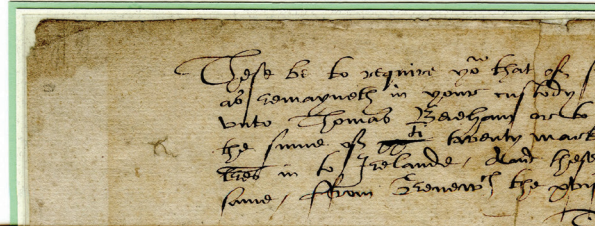 These be to require yoᵘ that of s
as remayneth in your custody
unto Thomas Bereham as to
the summe of li twenty mark
lres in to Irelande, And these
same, ffrom Grenewᶜʰ the xviij